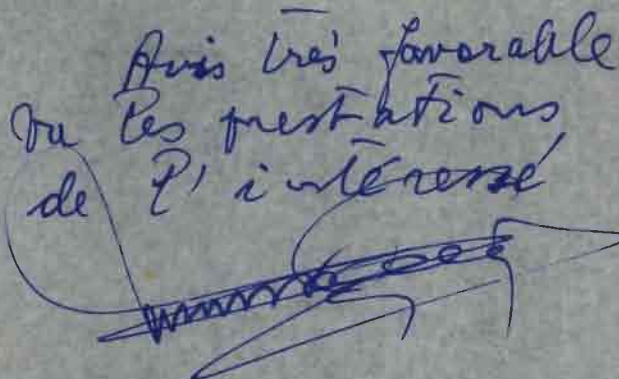 Avis très favorable
vu les prestations
de l'intéressé